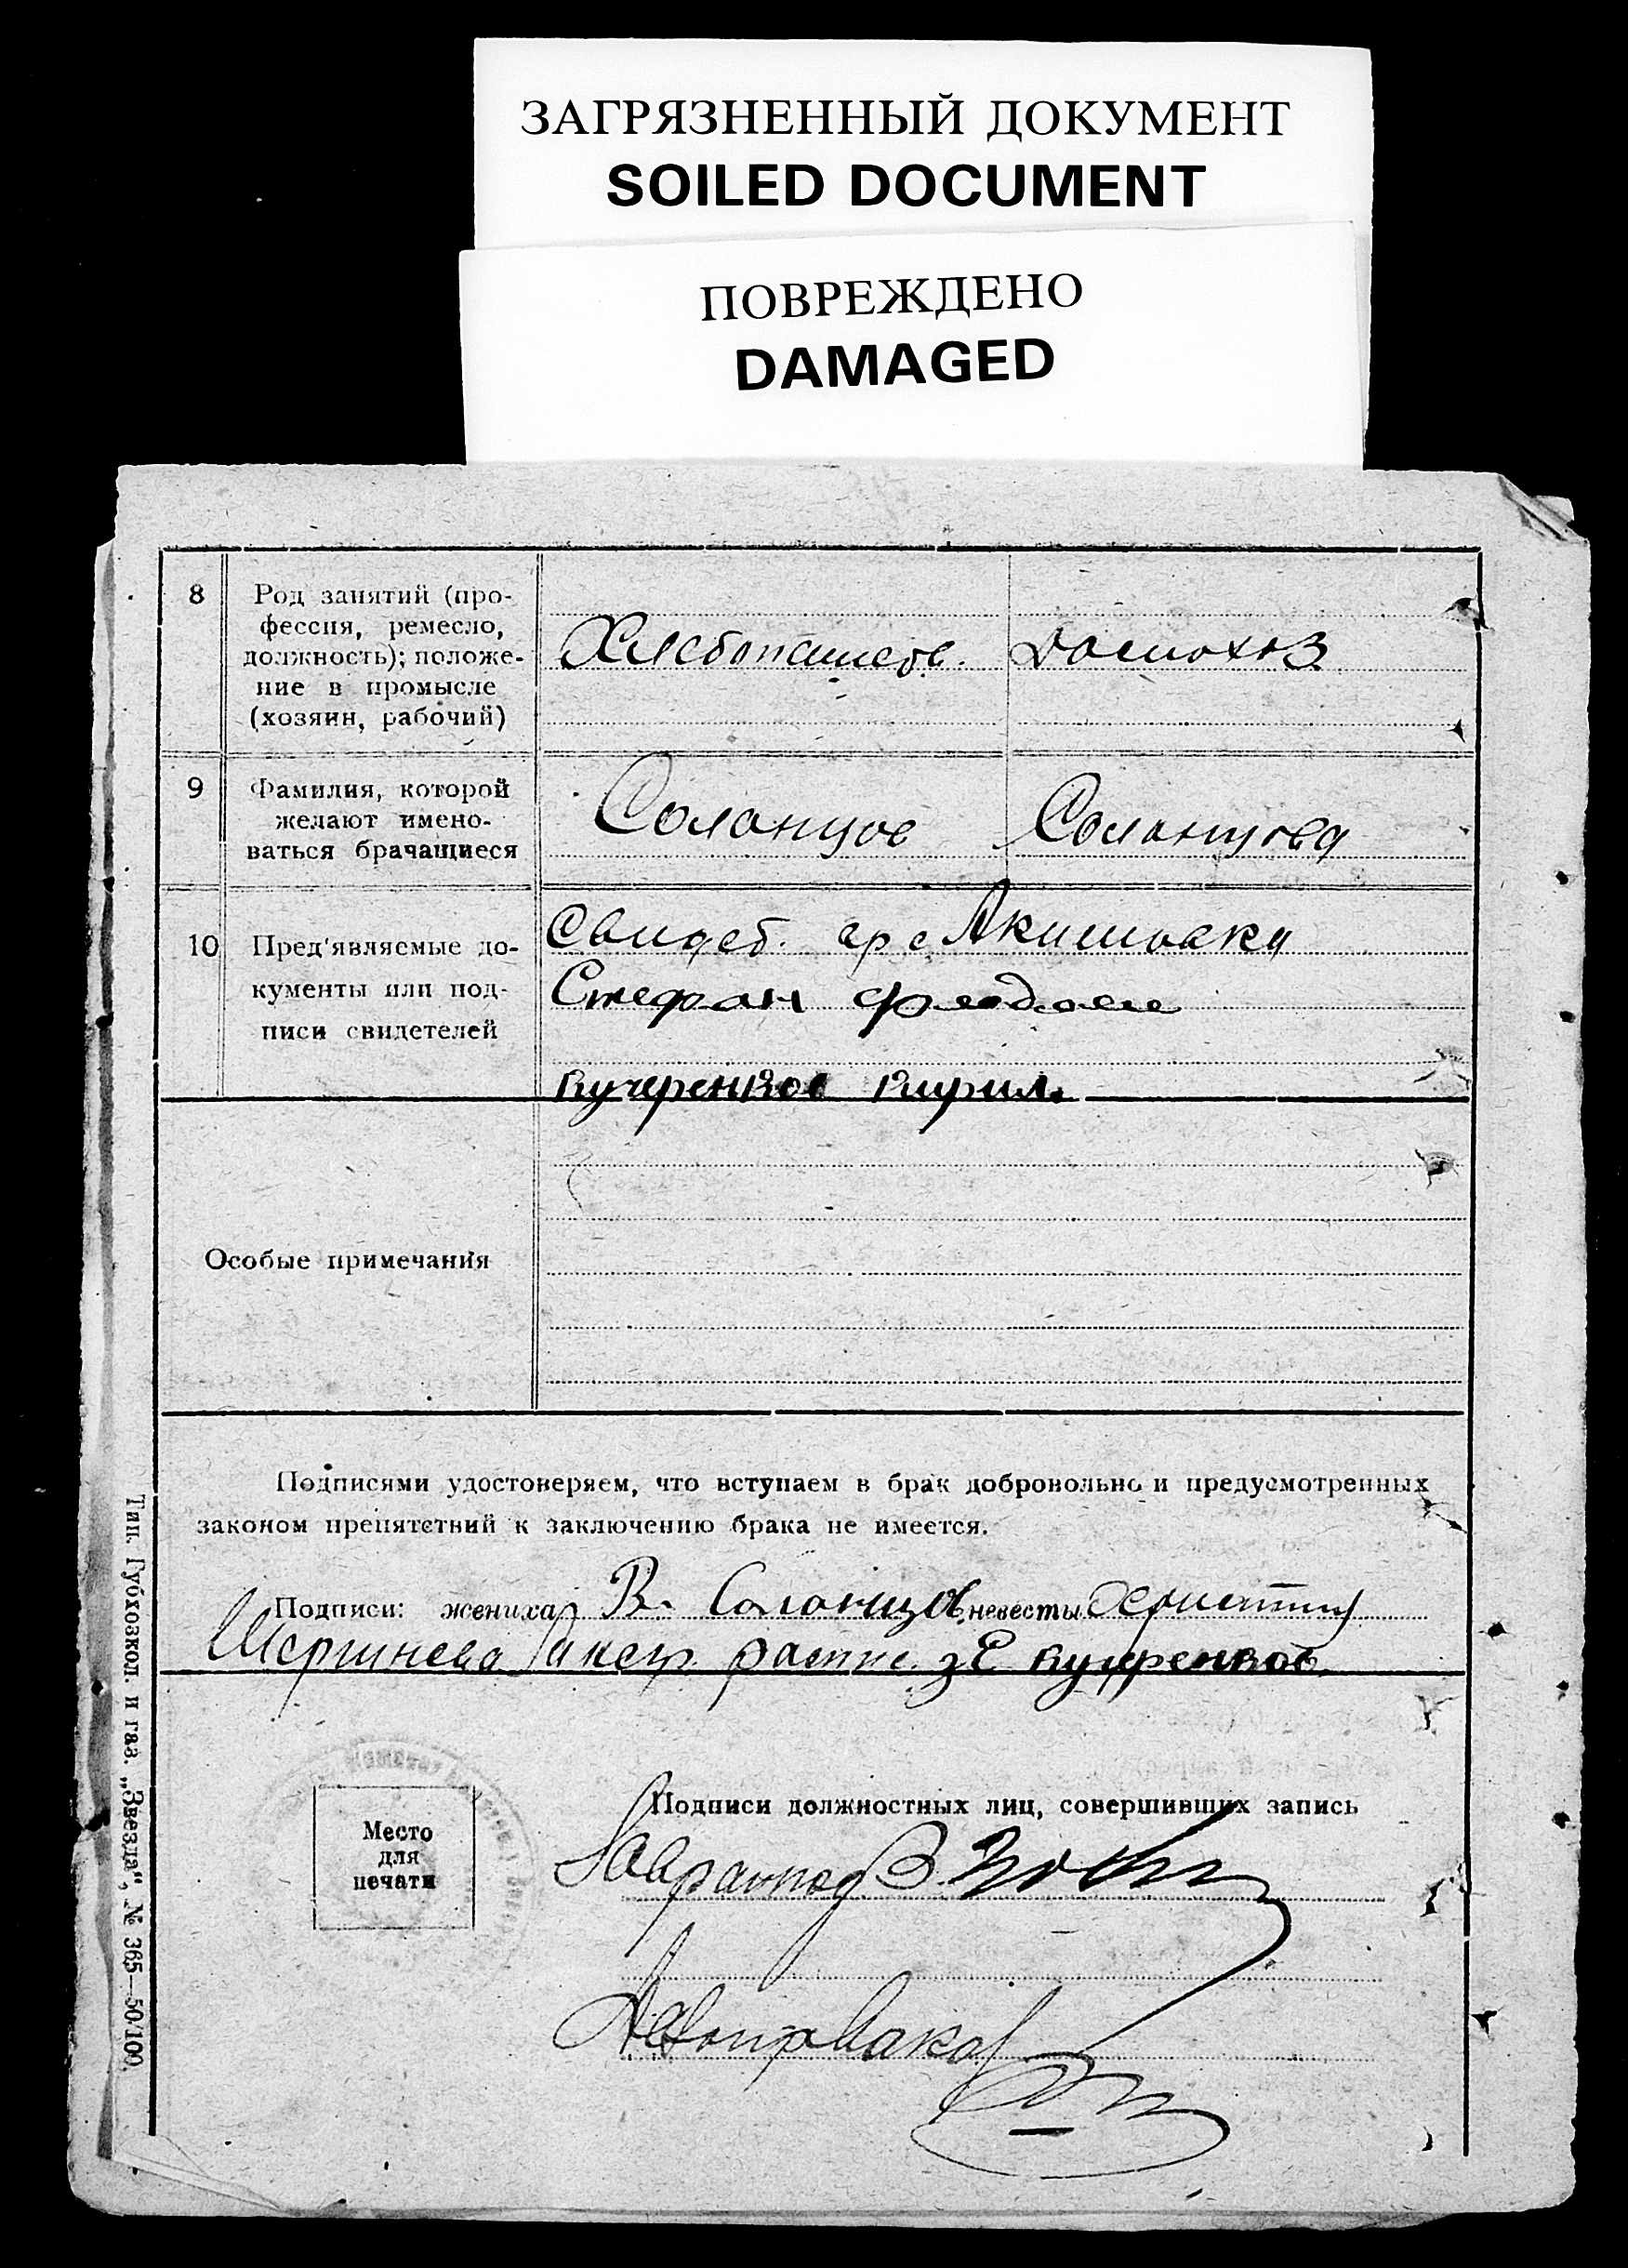 ЗАГРЯЗНЕННЫЙ ДОКУМЕНТ
SOILED DOCUMENT
ПОВРЕЖДЕНО
DAMAGED
8
Род занятий (про-
фессия, ремесло,
должность); положе-
ние в промысле
(хозяин, рабочий)
Хлебопашев.
Домохоз
9
Фамилия, которой
желают имено-
ваться брачащиеся
Солонцов
Солонцова
10
Пред'являемые до-
кументы или под-
писи свидетелей
Свидет. гр с Акимовка
Стефан
Кучеренков Кирил.
Особые примечания
Подписями удостоверяем, что вступаем в брак добровольно и предусмотренных
законом препятствий к заключению брака не имеется.
Подписи: жениха В. Солонцов невесты Христину
негр. распис. Кучеренков
Место
для
печати
Подписи должностных лиц, совершивших запись
Заврагпод В.
Делопр
Тип. Губхозкол. и газ. „Звезда“, № 365—50/100.